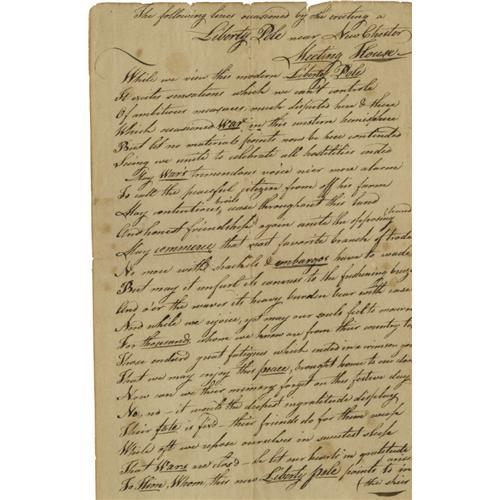 The following lines occasioned by the erecting a
Liberty Pole near New Chester
Meeting House
While we view this modern Liberty Pole
It exites sensations which we can't controle
Of ambitious measures much disputed here & there
Which occasioned War in this western hemisphere
But let no materials points now be here contended
Seeing we unite to celebrate all hostilities ended
May War's tremendous voice ne'er more alarm
To call the peaceful citizen from off his farm
May contentious evils cease throughout this land
And honest friendship again unite the opposing band
May commerce that most favorite branch of trade
No more with shackels & embargos have to wade
But may it unfurl its canvass to the freshening breeze
And o'er the waves its heavy burden bear with ease
And while we rejoice, yet may our souls feel to mourn
For thousands whom we know are from their country torn
Have endured great fatigues which ended in a crimson
That we may enjoy this peace, brought home to our
Now can we their memory forget on this festive day
No, no - it would the deepest ingratitude display
Their fate is fix'd - their friends do for them weep
While oft we repose ourselves in sweetest sleep
That Wars are closed - let our hearts in gratitude arise
To Him, Whom, this new Liberty pole points to in
(the skies